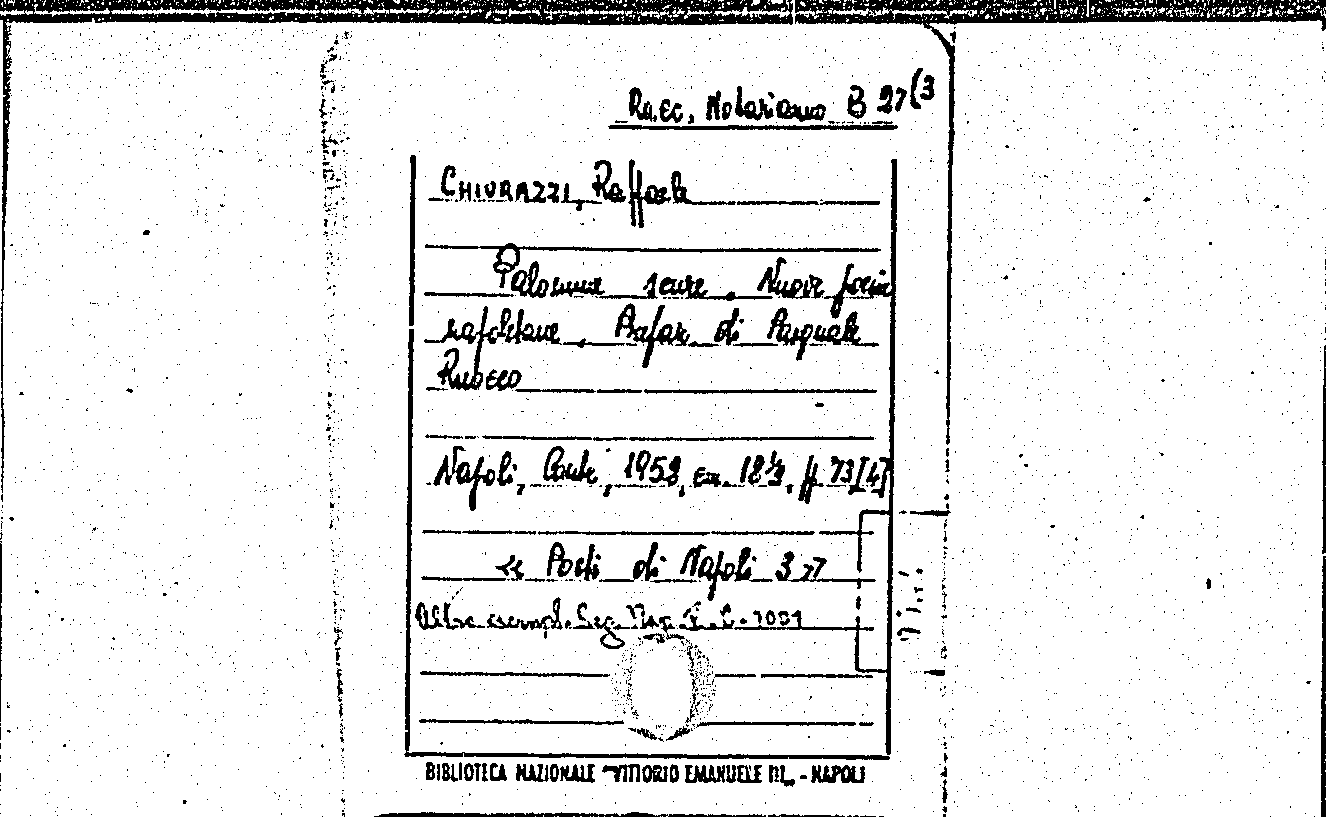 Racc. Notariamo B 27(3
CHIURAZZI, Raffaele
Palomme scure. Nuove poesie
napoletane. Prefaz. di Pasquale
Ruocco
Napoli, Conte, 1953, cm. 18½, pp 73[4]
« Poeti di Napoli 3 »
Altro esempl. Seg.
BIBLIOTECA NAZIONALE VITTORIO EMANUELE III - NAPOLI